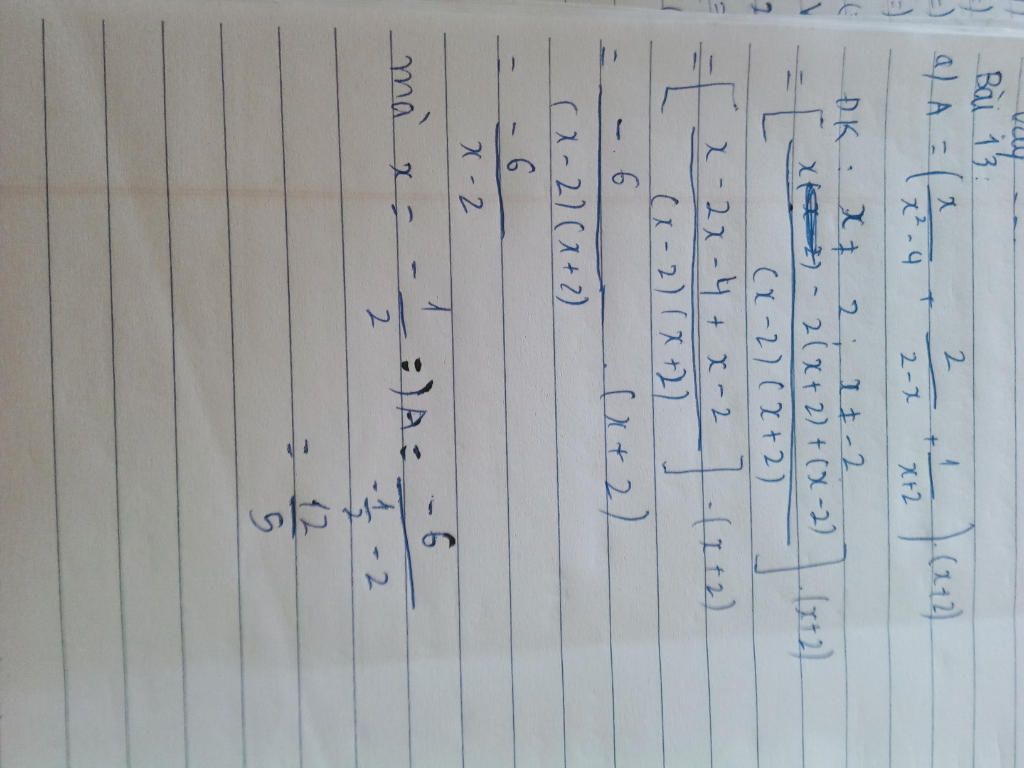 Bài 13:
a) A = (x/(x² - 4) + 2/(2 - x) + 1/(x+2)) . (x+2)
ĐK : x ≠ 2 ; x ≠ -2
= [(x - 2(x+2) + (x-2))/((x-2)(x+2))] . (x+2)
= [(x - 2x - 4 + x - 2)/((x-2)(x+2))] . (x+2)
= -6/((x-2)(x+2)) . (x+2)
= -6/(x-2)
mà x = -1/2 => A = -6/(-1/2 - 2)
= 12/5